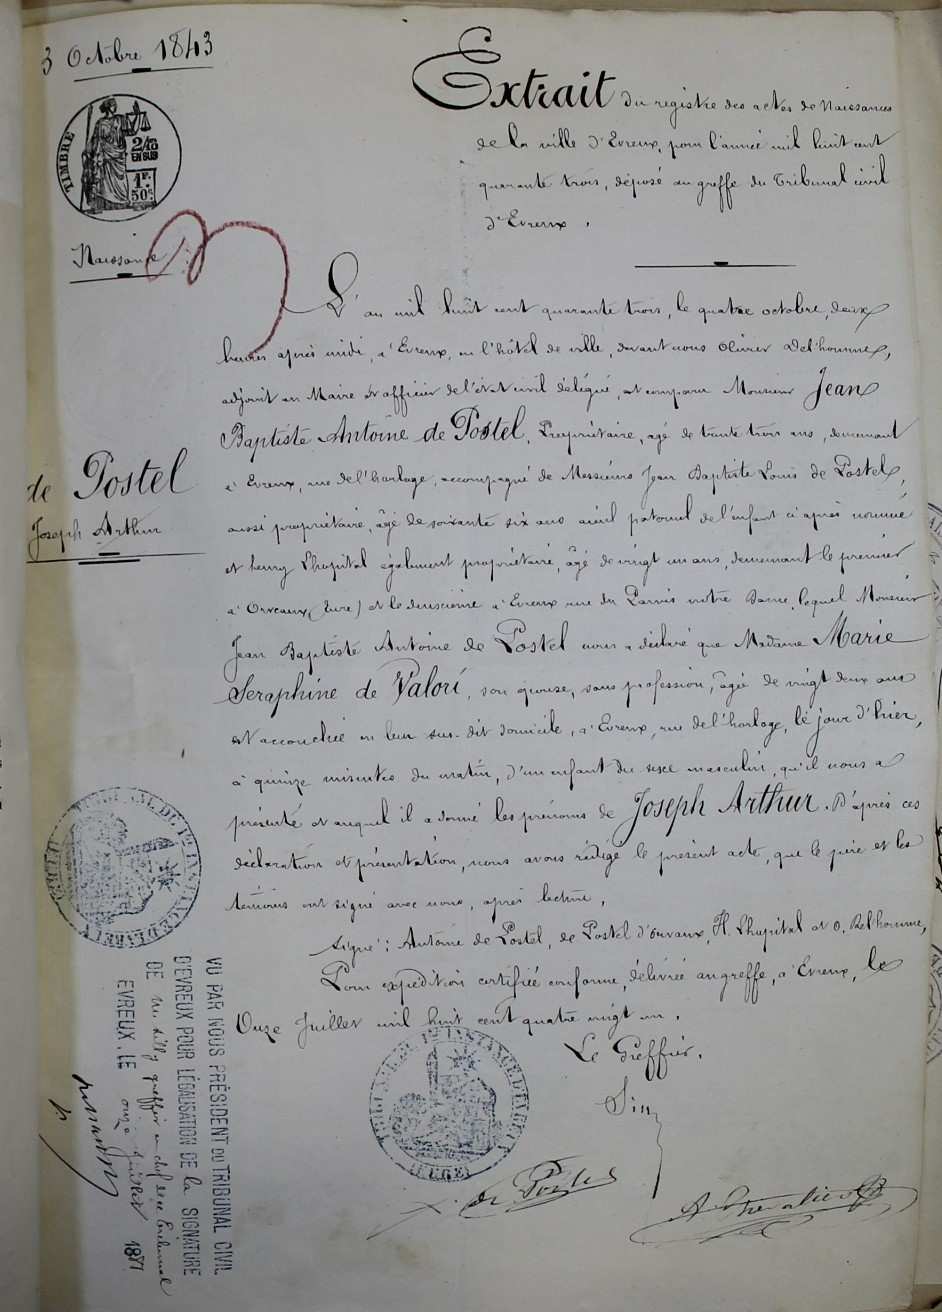 3 Octobre 1843
TIMBRE
2/10
EN SUS
1F.
50c.
Naissance
de Postel
Joseph Arthur
Extrait du registre des actes de Naissances
de la ville d'Evreux, pour l'année mil huit cent
quarante trois, déposé au greffe du Tribunal civil
d'Evreux.
L'an mil huit cent quarante trois, le quatre octobre, deux
heures après midi, à Evreux, en l'hôtel de ville, devant nous Olivier Delhomme,
adjoint au Maire et officier de l'état civil délégué, est comparu Monsieur Jean
Baptiste Antoine de Postel, Propriétaire, agé de trente trois ans, demeurant
à Evreux, rue de l'horloge, accompagné de Messieurs Jean Baptiste Louis de Postel,
aussi propriétaire, âgé de soixante six ans aïeul paternel de l'enfant ci après nommé
et henry Lhopital également propriétaire, âgé de vingt un ans, demeurant le premier
à Orvaux (Eure) et le deuxième à Evreux rue du Parvis notre Dame, lequel Monsieur
Jean Baptiste Antoine de Postel nous a déclaré que Madame Marie
Seraphine de Valori, son épouse, sans profession, âgée de vingt deux ans
est accouchée en leur sus-dit domicile, à Evreux, rue de l'horloge, le jour d'hier,
à quinze minutes du matin, d'un enfant du sexe masculin, qu'il nous a
présenté et auquel il a donné les prénoms de Joseph Arthur. D'après ces
déclaration et présentation, nous avons rédigé le présent acte, que le père et les
témoins ont signé avec nous, après lecture.
Signé : Antoine de Postel, de Postel d'orvaux, H. Lhopital et O. Delhomme,
Pour expédition certifiée conforme, délivrée au greffe, à Evreux, le
Onze Juillet mil huit cent quatre vingt un.
Le Greffier.
de Postel
A. Chevalier
VU PAR NOUS PRÉSIDENT DU TRIBUNAL CIVIL
D'EVREUX POUR LÉGALISATION DE la SIGNATURE
DE greffier en chef
EVREUX, LE onze Juillet 1881
TRIBUNAL DE 1re INSTANCE D'EVREUX
(EURE)